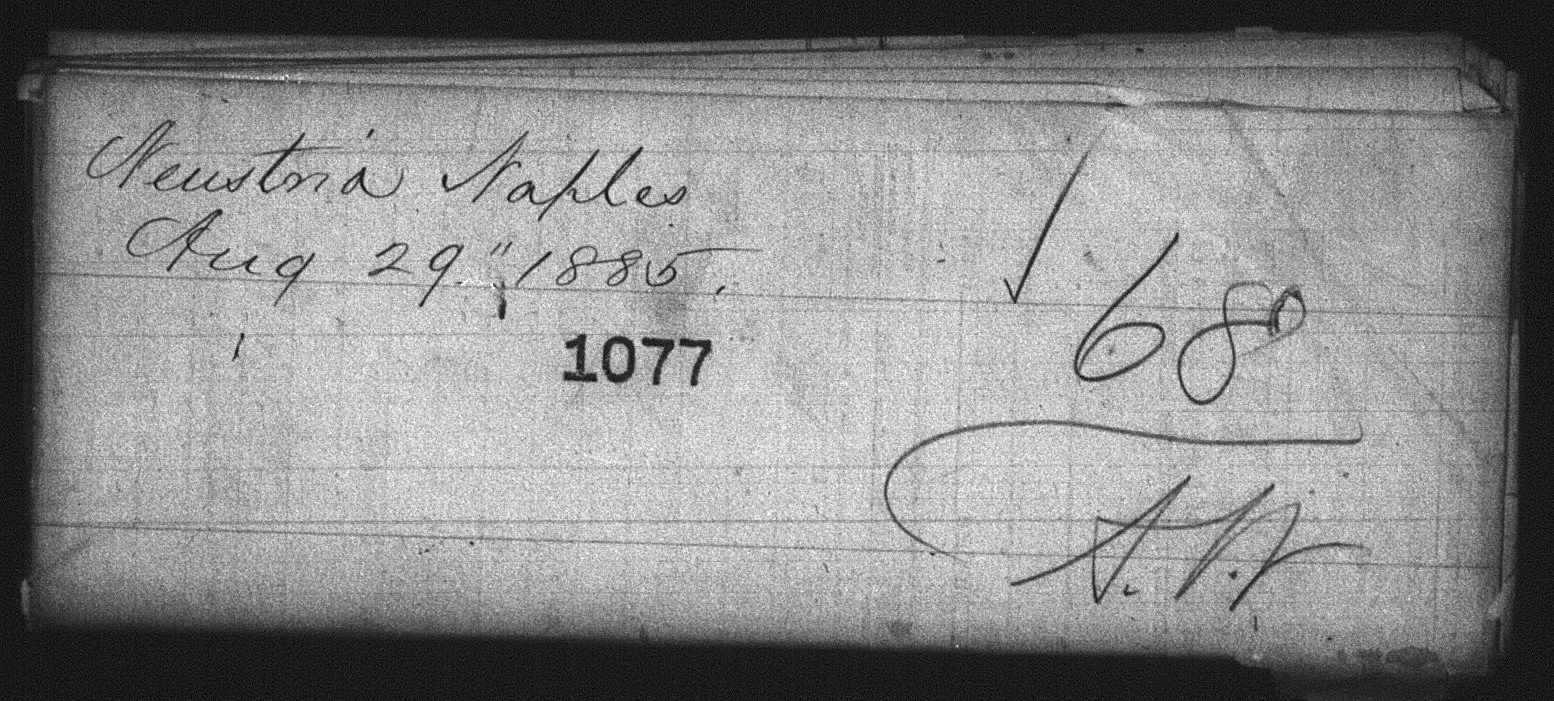 Neustria Naples
Aug 29" 1885.
1077
68